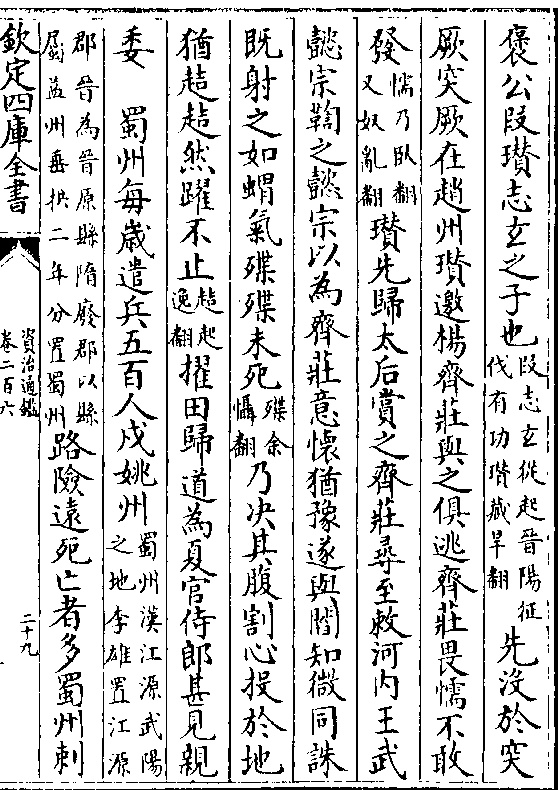 褒公段瓉志𤣥之子也段志𤣥從起晉陽征伐有功瓉藏旱翻先没於突
厥突厥在趙州瓉邀楊齊莊與之俱逃齊莊畏懦不敢
發懦乃卧翻又奴亂翻瓉先歸太后賞之齊莊尋至敕河内王武
懿宗鞫之懿宗以為齊莊意懐猶豫遂與閻知微同誅
既射之如蝟氣殜殜未死殜余懾翻乃决其腹割心投於地
猶趌趌然躍不止趌起逸翻擢田歸道為夏官侍郎甚見親
委　蜀州毎歲遣兵五百人戍姚州蜀州漢江源武陽之地李雄置江源
郡晉為晉原縣隋廢郡以縣屬益州垂拱二年分置蜀州路險逺死亡者多蜀州刺
欽定四庫全書
資治通鑑
卷二百六
二十九